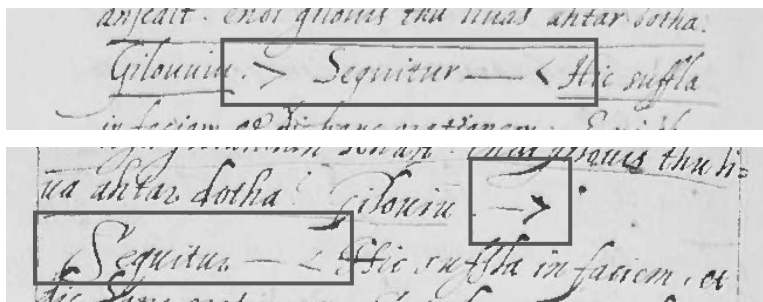 anjcait. Endi gilouis thu liuas ahtar dotha.
Gilouuiu. > Sequitur — < Hic suffla
in faciem et dic hanc orationem.
sonast. Endi gilouis thu li=
ua ahtar dotha? Gilouiu. —>
Sequitur — < Hic suffla in faciem, et
dic hanc